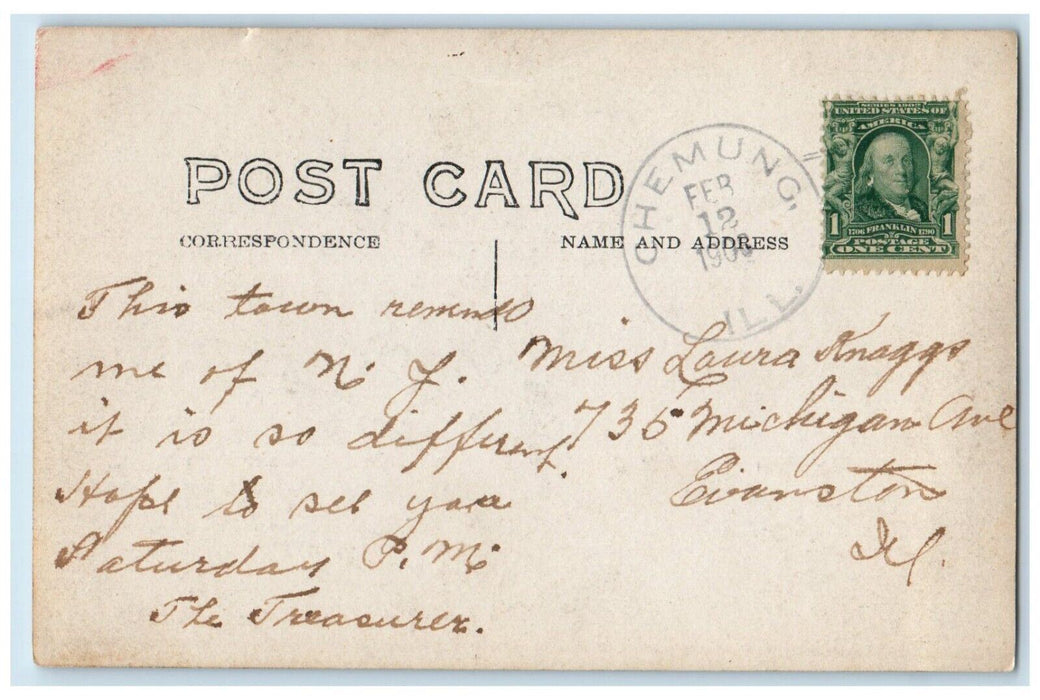 POST CARD
CORRESPONDENCE
NAME AND ADDRESS
CHEMUNG, ILL.
FEB
12
SERIES 1902
UNITED STATES OF
AMERICA
1 1706 FRANKLIN 1790 1
POSTAGE
ONE CENT
This town reminds
me of N. J.
it is so different.
Hope to see you
Saturday P. M.
The Treasurer.
Miss Laura Knaggs
735 Michigan Ave
Evanston
Ill.